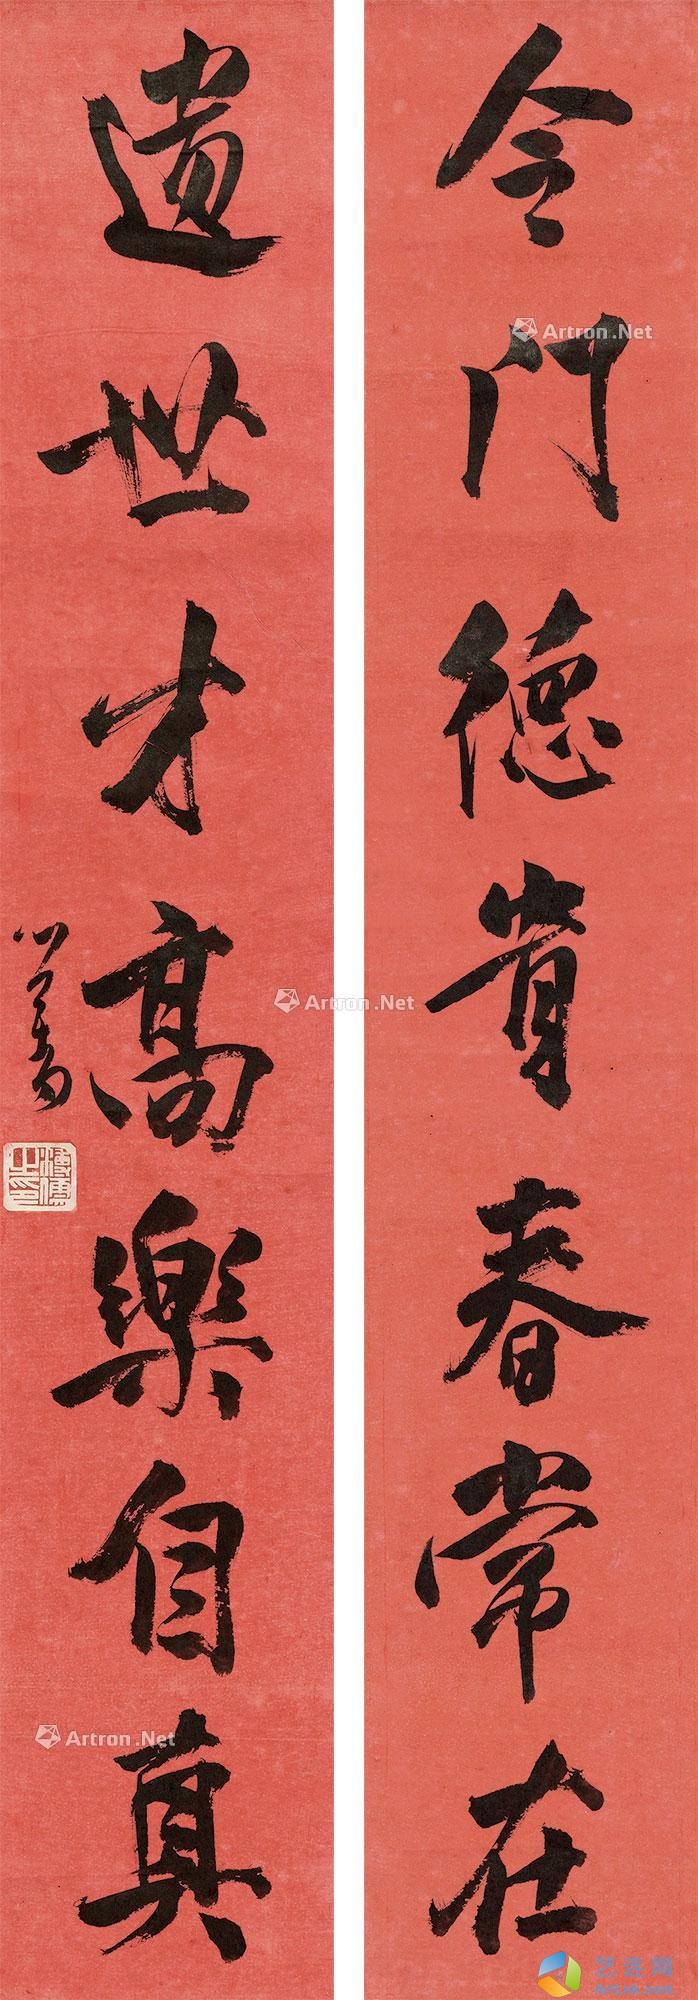 令門德貴春常在
遺世才高樂自真
心畬
溥儒之印
Artron.Net
Artron.Net
Artron.Net
艺连网
ArtLink.com